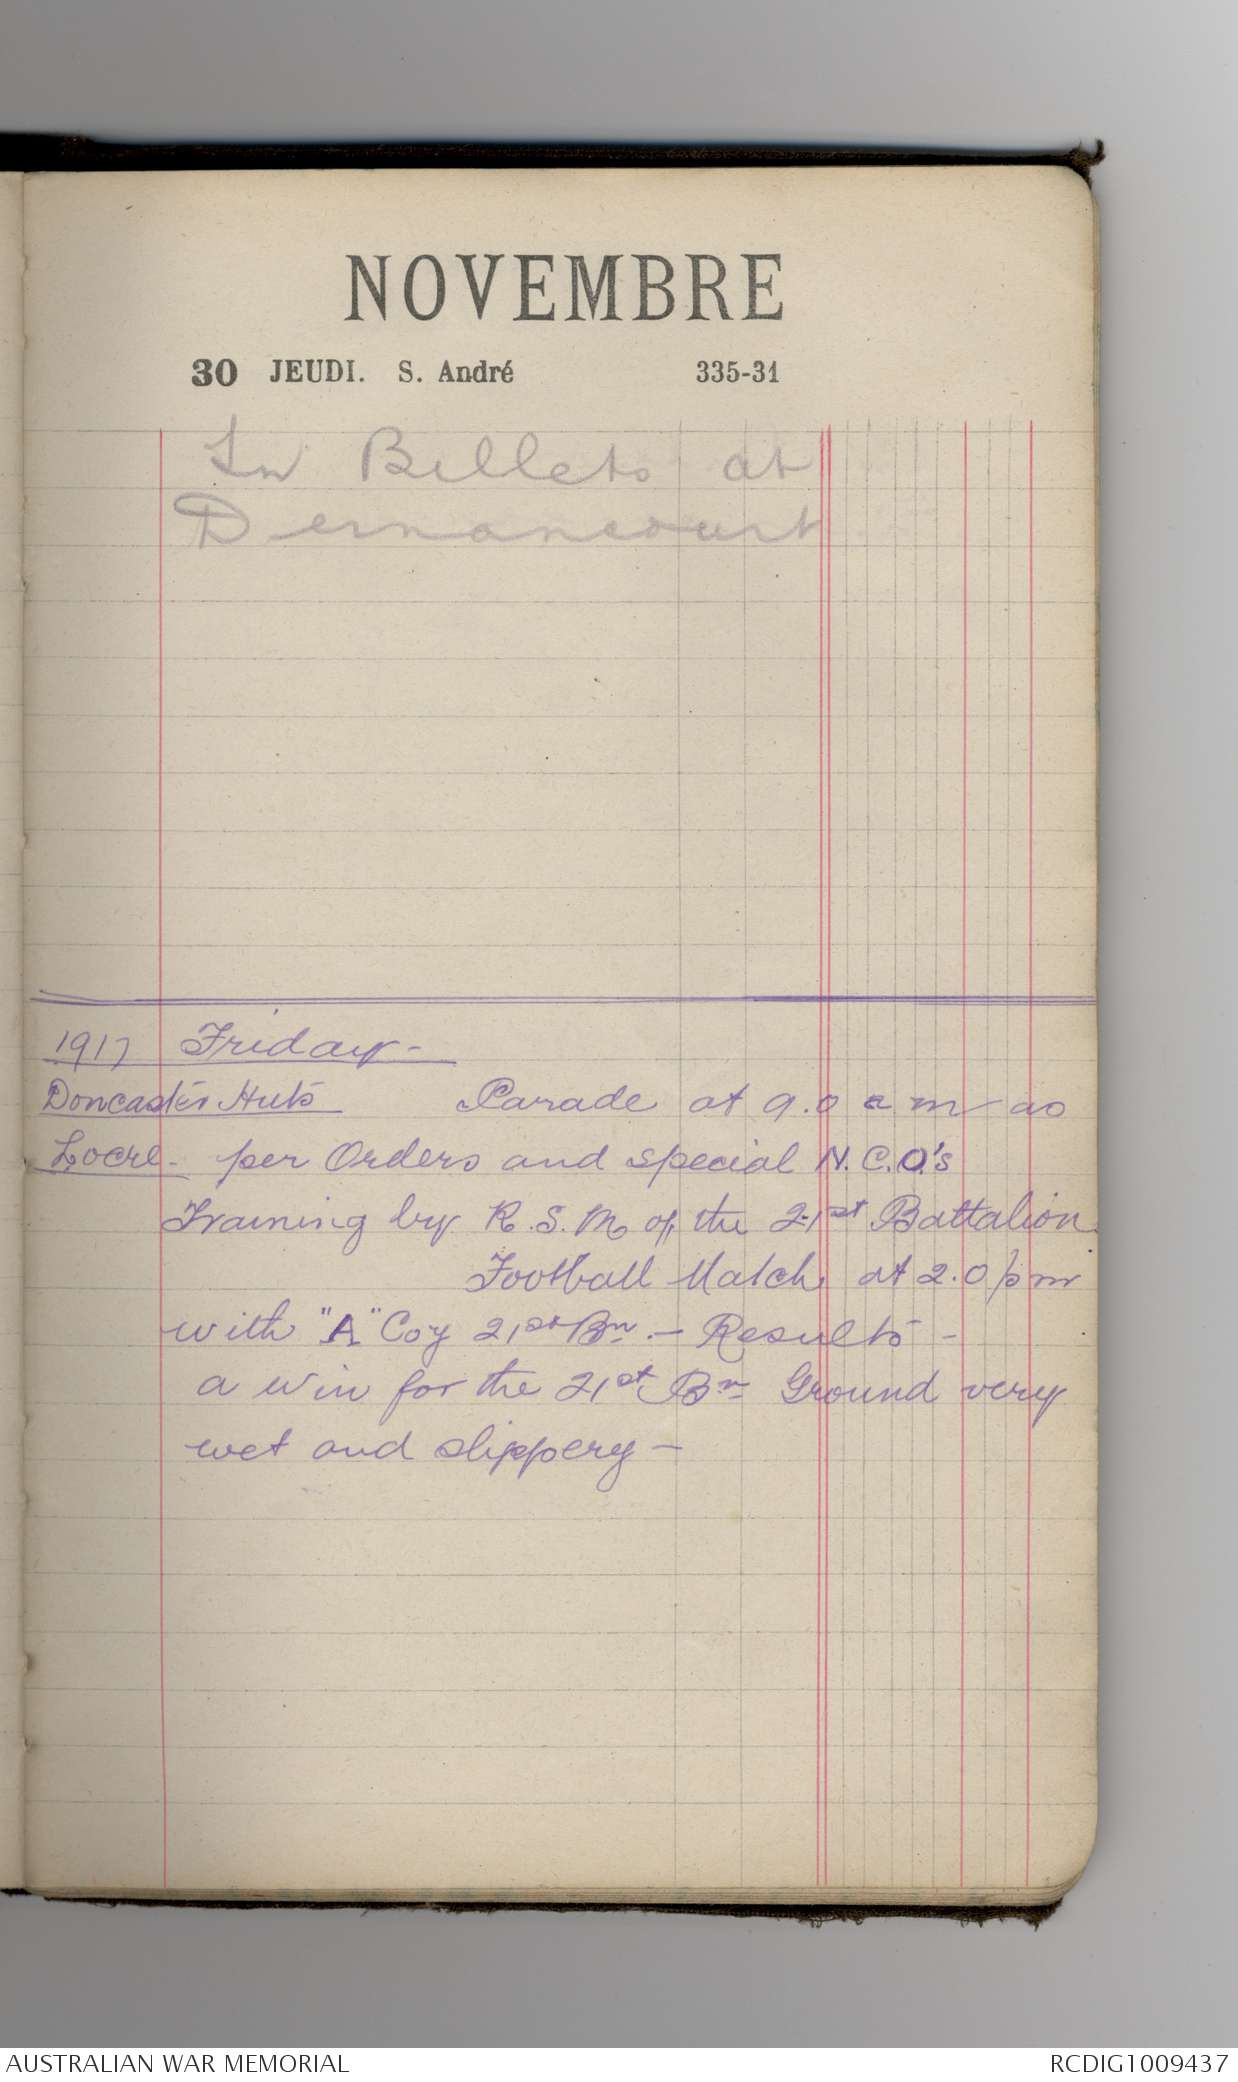 NOVEMBRE
30 JEUDI. S. André 335-31
In Billets at
Dernancourt
1917 Friday -
Doncaster Huts Parade at 9.0 a m as
Locre - per Orders and special N.C.O's
Training by R.S.M of the 21st Battalion.
Football Match at 2.0 pm
with "A" Coy 21st Bn. - Results -
a win for the 21st Bn Ground very
wet and slippery -
AUSTRALIAN WAR MEMORIAL RCDIG1009437